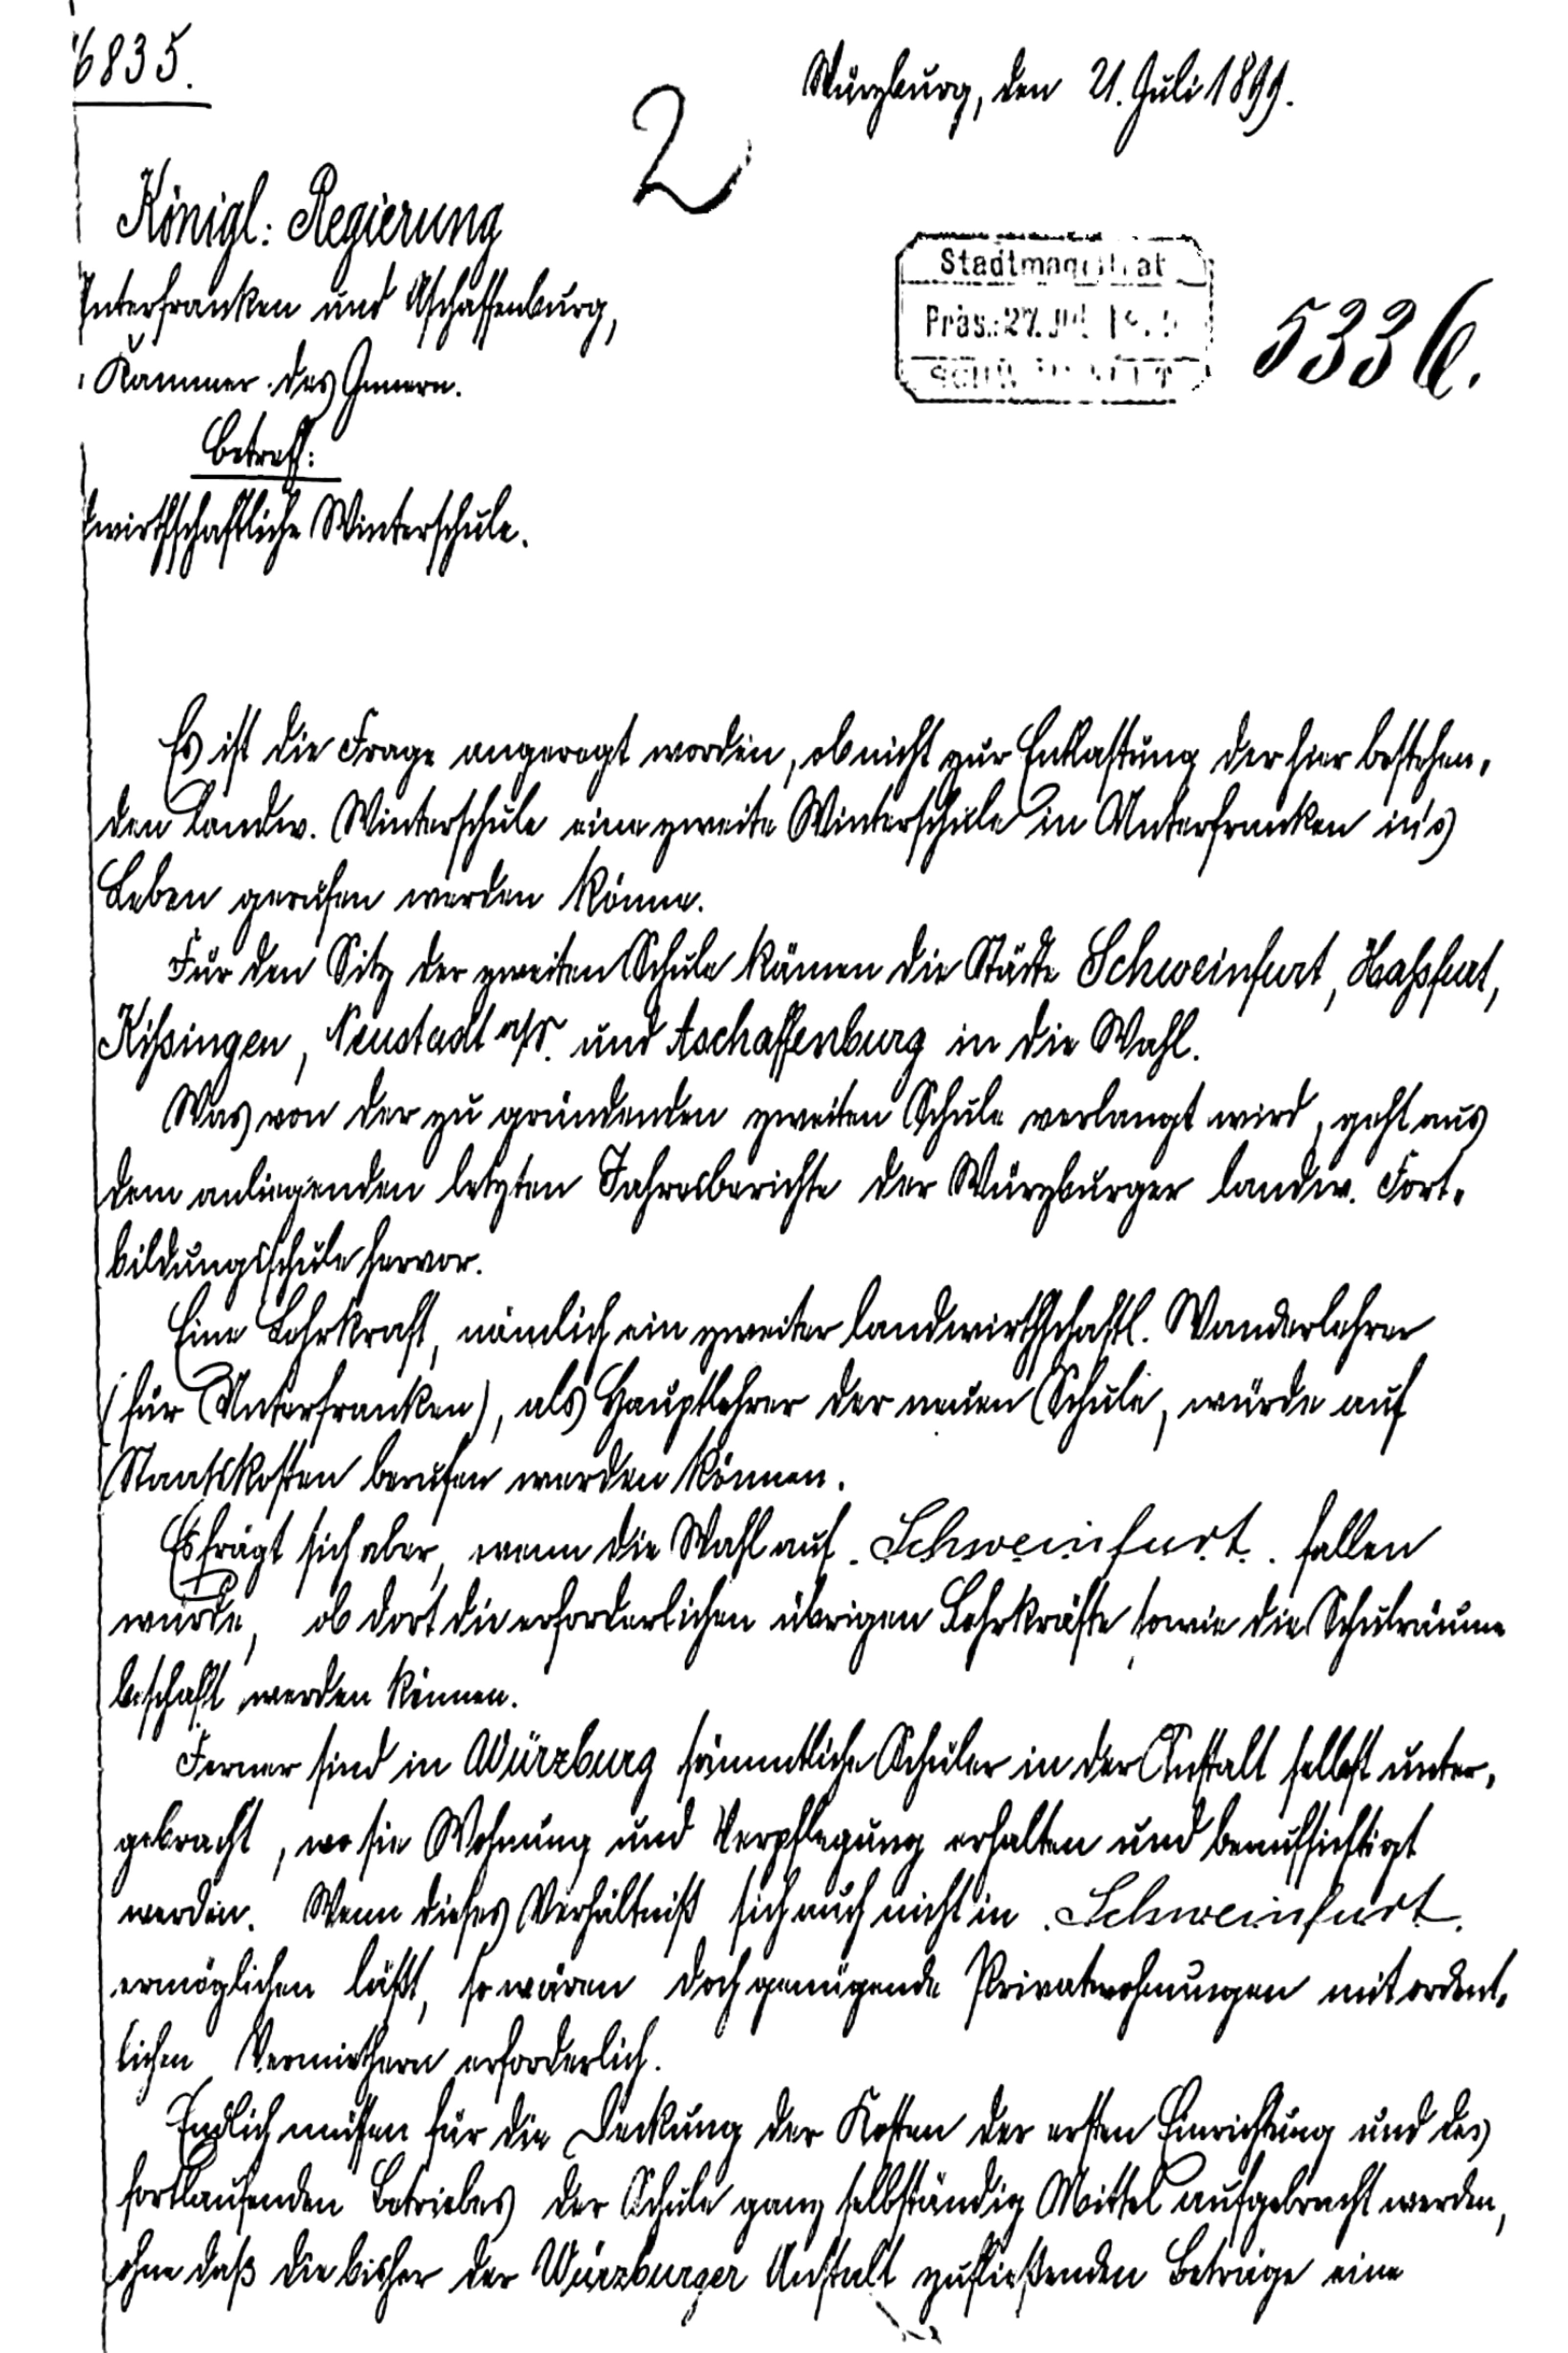 6835.
Würzburg, den 21. Juli 1899.
2
Königl: Regierung
Unterfranken und Aschaffenburg,
Kammer des Innern.
Stadtmagistrat
Präs.: 27. Jul. 18
5336.
Betreff:
dwirthschaftliche Winterschule.
Es ist die Frage angeregt worden, ob nicht zur Entlastung der hier bestehen-
den landw. Winterschule eine zweite Winterschule in Unterfranken in's
Leben gerufen werden könne.
Für den Sitz der zweiten Schule kämen die Städte Schweinfurt, Haßfurt,
Kißingen, Neustadt a/S. und Aschaffenburg in die Wahl.
Was von der zu gründenden zweiten Schule verlangt wird, geht aus
dem anliegenden letzten Jahresberichte der Würzburger landw. Fort-
bildungsschule hervor.
Eine Lehrkraft, nämlich ein zweiter landwirthschaftl. Wanderlehrer
(für Unterfranken), als Hauptlehrer der neuen Schule, würde auf
Staatskosten berufen werden können.
Es frägt sich aber, wenn die Wahl auf Schweinfurt fallen
würde, ob dort die erforderlichen übrigen Lehrkräfte sowie die Schulräume
beschafft werden können.
Ferner sind in Würzburg sämmtliche Schüler in der Anstalt selbst unter-
gebracht, wo sie Wohnung und Verpflegung erhalten und beaufsichtigt
werden. Wenn dieses Verhältniß sich auch nicht in Schweinfurt
ermöglichen läßt, so wären doch genügende Privatwohnungen mit ordent-
lichen Vermiethern erforderlich.
Endlich müssen für die Deckung der Kosten der ersten Einrichtung und des
fortlaufenden Betriebes der Schule ganz selbständig Mittel aufgebracht werden,
ohne daß die bisher der Würzburger Anstalt zufließenden Beträge eine